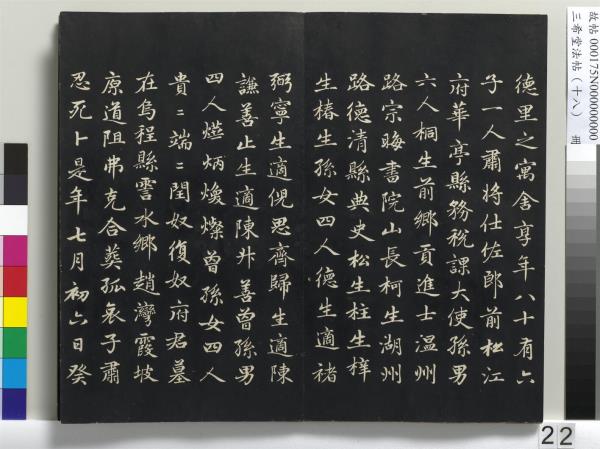 德里之寓舍享年八十有六
子一人肅將仕佐郎前松江
府華亭縣務稅課大使孫男
六人桐生前鄉貢進士溫州
路宗晦書院山長柯生湖州
路德清縣典史松生柱生梓
生椿生孫女四人德生適褚
弼寧生適倪思齊歸生適陳
謙善止生適陳井善曾孫男
四人燧炳煥燦曾孫女四人
貴〻端〻閏奴復奴府君墓
在烏程縣霅水鄉趙灣霞坡
原道阻弗克合葬孤哀子肅
忍死卜是年七月初六日癸
故帖 000175N000000000
三希堂法帖(十八) 冊
22